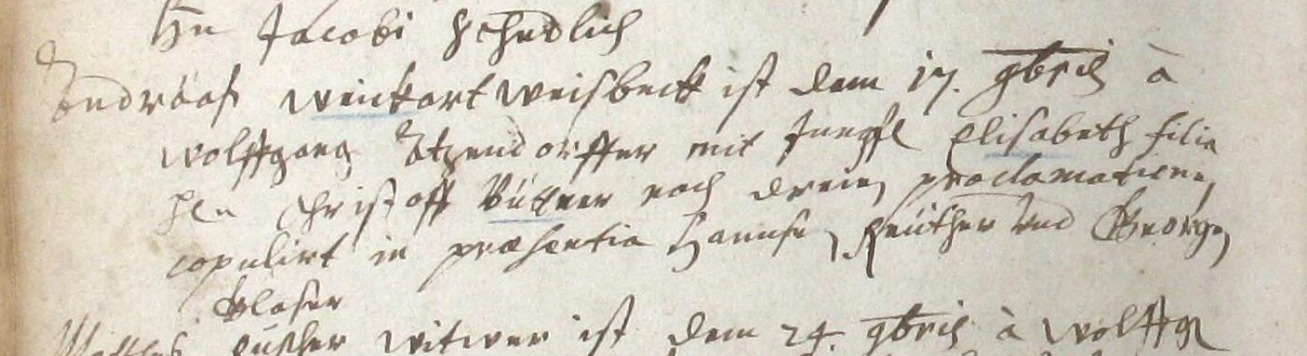 Hn Jacobi Schedlich
Andreas Weickart Weisbeck ist dem 17. 9bris à
Wolffgang Etzendorffer mit Jungfl Elisabeth filia
Hn Christoff Büttner nach dreien proclamationen
copulirt in præsentia Hannsen Reüther und Georgen
Glaser
witwer ist dem 24. 9bris à Wolffg